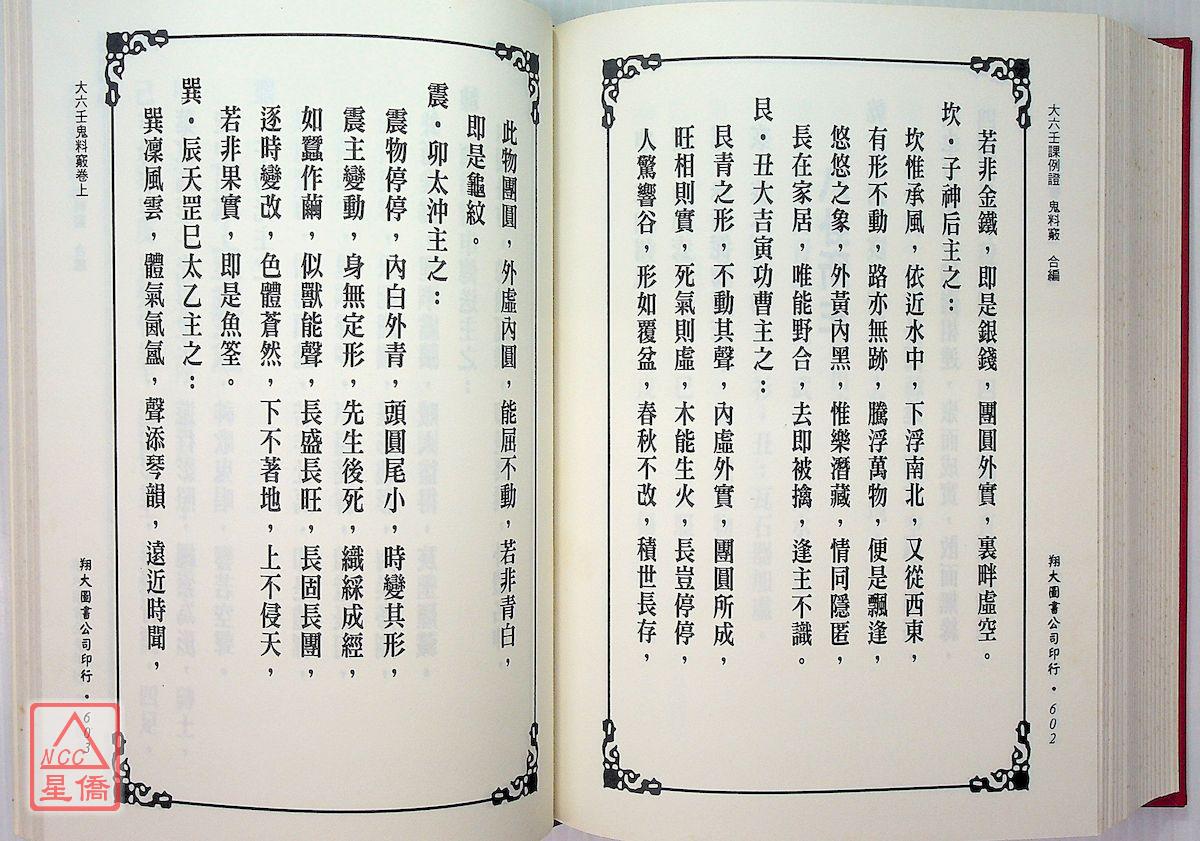 大六壬課例證　鬼料竅　合編
翔大圖書公司印行・602
若非金鐵，即是銀錢，團圓外實，裏畔虛空。
坎・子神后主之：
坎惟承風，依近水中，下浮南北，又從西東，
有形不動，路亦無跡，騰浮萬物，便是飄逢，
悠悠之象，外黃內黑，惟樂潛藏，情同隱匿，
長在家居，唯能野合，去即被擒，逢主不識。
艮・丑大吉寅功曹主之：
艮青之形，不動其聲，內虛外實，團圓所成，
旺相則實，死氣則虛，木能生火，長豈停停，
人驚響谷，形如覆盆，春秋不改，積世長存，
此物團圓，外虛內圓，能屈不動，若非青白，
即是龜紋。
震・卯太沖主之：
震物停停，內白外青，頭圓尾小，時變其形，
震主變動，身無定形，先生後死，織綵成經，
如蠶作繭，似獸能聲，長盛長旺，長固長團，
逐時變改，色體蒼然，下不著地，上不侵天，
若非果實，即是魚筌。
巽・辰天罡巳太乙主之：
巽凜風雲，體氣氤氳，聲添琴韻，遠近時聞，
大六壬鬼料竅卷上
翔大圖書公司印行・603
NCC
星僑